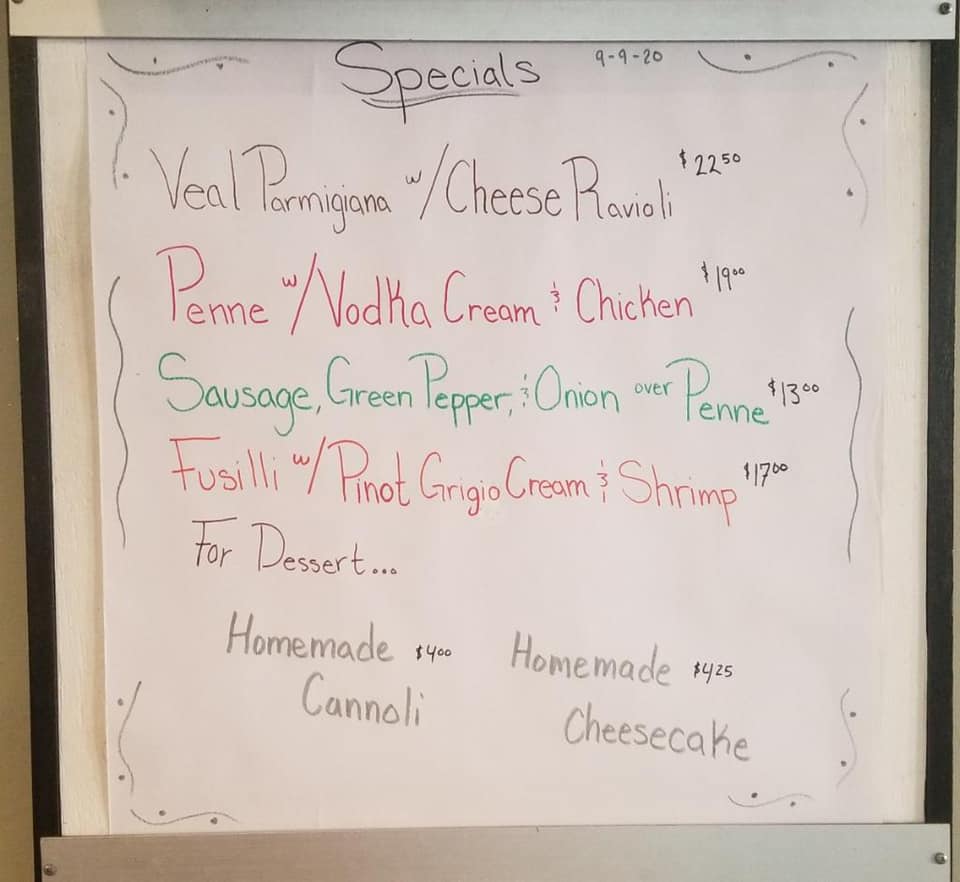 Specials 9-9-20
Veal Parmigiana w/ Cheese Ravioli $22.50
Penne w/ Vodka Cream & Chicken $19.00
Sausage, Green Pepper, & Onion over Penne $13.00
Fusilli w/ Pinot Grigio Cream & Shrimp $17.00
For Dessert...
Homemade $4.00
Cannoli
Homemade $4.25
Cheesecake